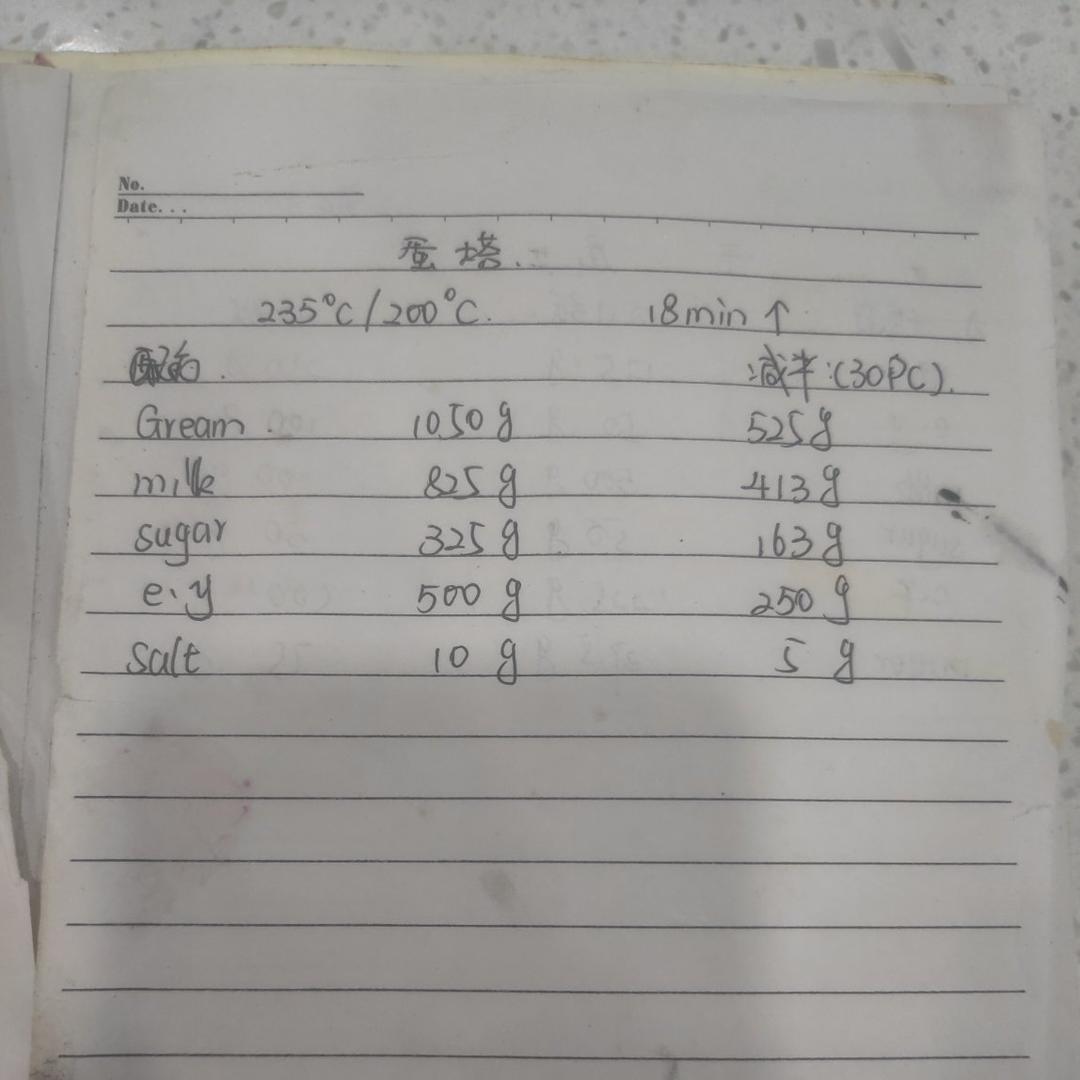 No.
Date...
蛋塔.
235°C/200°C. 18min↑
减半:(30PC).
Gream. 1050g 525g
milk 825g 413g
sugar 325g 163g
e.y 500g 250g
Salt 10g 5g